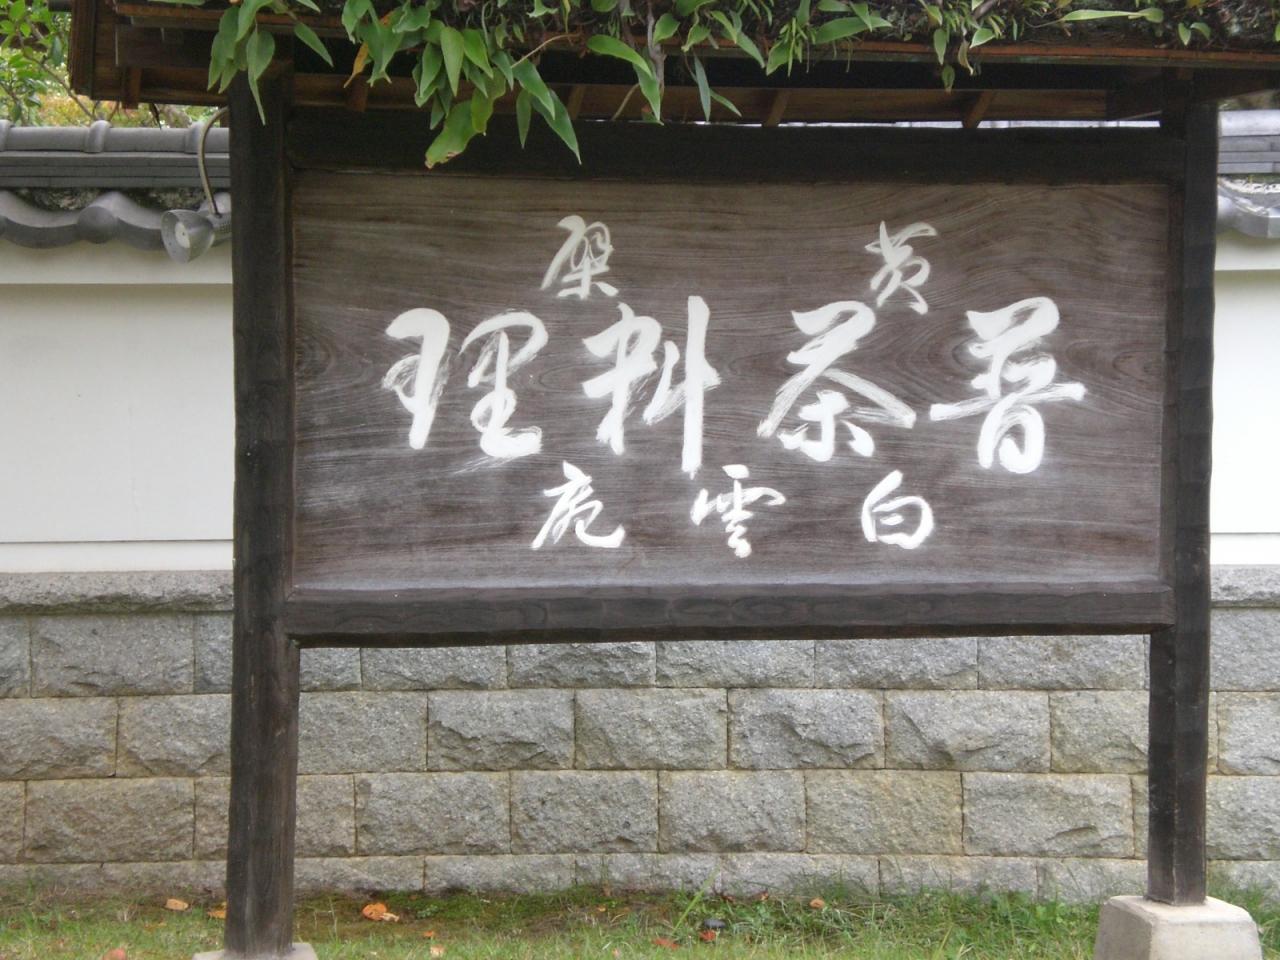 黄檗
普茶料理
白雲庵